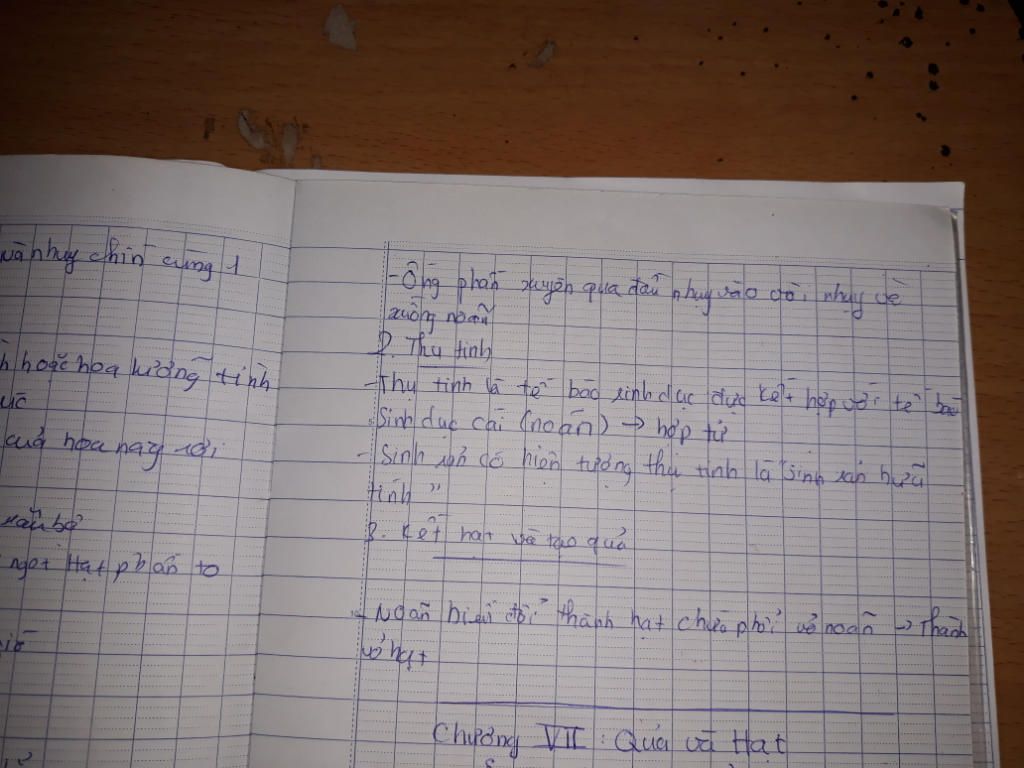 và nhụy chín cùng 1
hoặc hoa lưỡng tính
của hoa này với
ngọt Hạt phấn to
- Ống phấn xuyên qua đầu nhụy vào vòi nhụy về
xuống noãn
2. Thụ tinh
- Thụ tinh là tế bào sinh dục đực kết hợp với tế bào
sinh dục cái (noãn) → hợp tử
- Sinh sản có hiện tượng thụ tinh là "sinh sản hữu
tính"
3. Kết hạt và tạo quả
- Noãn biến đổi thành hạt chứa phôi vỏ noãn → Thành
vỏ hạt
Chương VII : Quả và Hạt